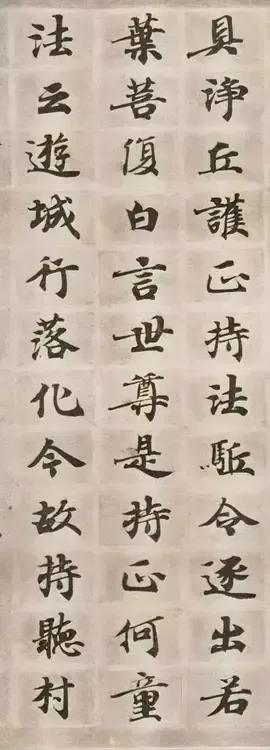 具淨丘護正持法駈令逐出若
葉菩復白言世尊是持正何童
法云遊城行落化令故持聽村